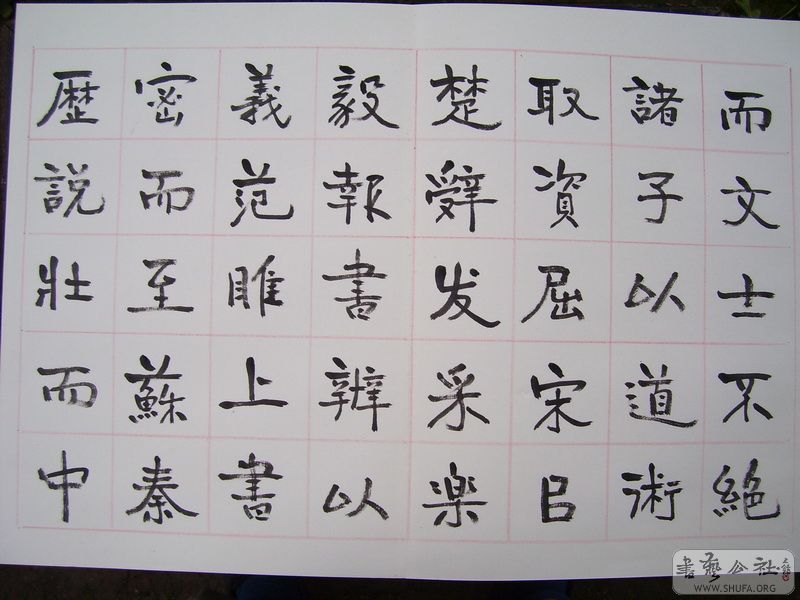 而文士不絕
諸子以道術
取資屈宋㠯
楚辭发采楽
毅報書辨以
義范雎上書
密而至蘇秦
歴説壯而中
書藝公社
WWW.SHUFA.ORG